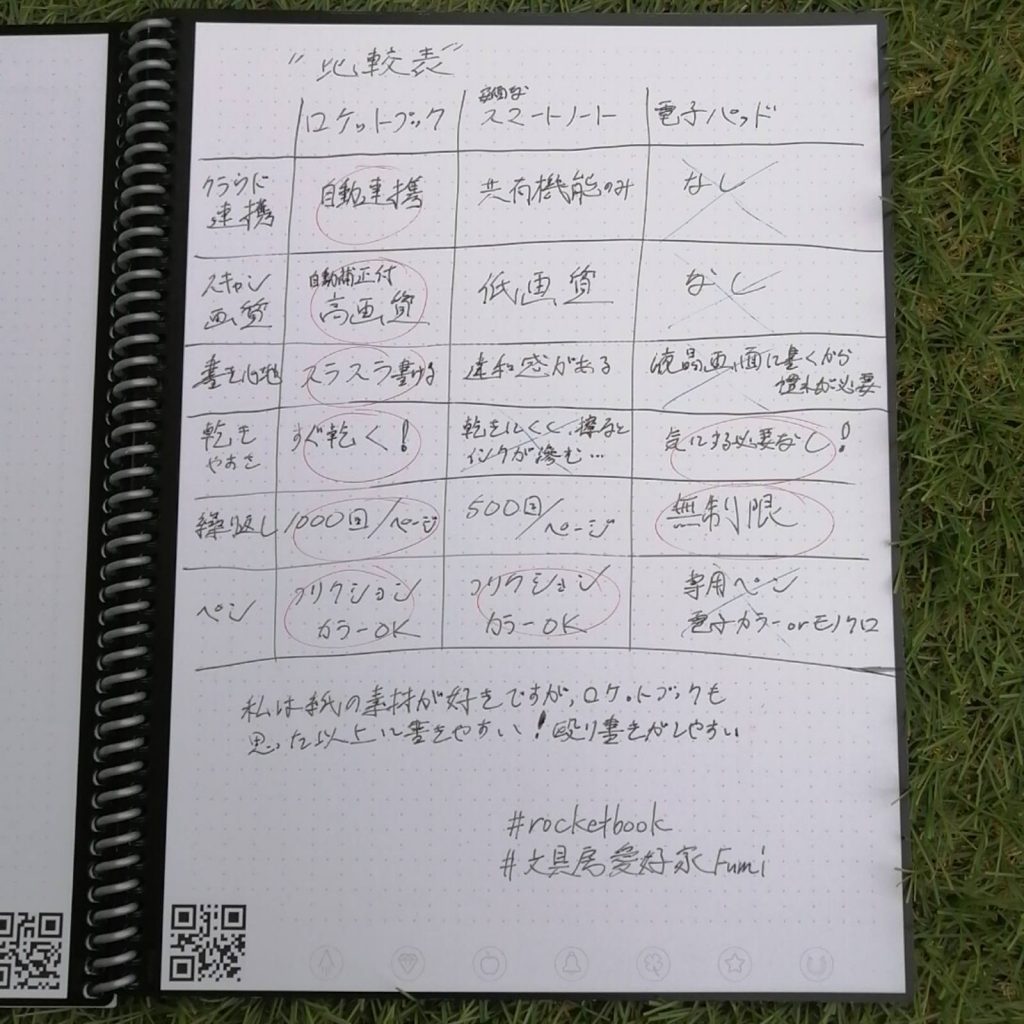 "比較表"
ロケットブック
スマートノート
電子パッド
クラウド
連携
自動連携
共有機能のみ
なし
スキャン
画質
自動補正付
高画質
低画質
なし
書き心地
スラスラ書ける
違和感がある
液晶画面に書くから
慣れが必要
乾き
やすさ
すぐ乾く!
乾きにくく、擦ると
インクが滲む…
気にする必要なし!
繰り返し
1000回/ページ
500回/
ページ
無制限
ペン
フリクション
カラーOK
フリクション
カラーOK
専用ペン
電子カラーorモノクロ
私は紙の素材が好きですが、ロケットブックも
思った以上に書きやすい!殴り書きがしやすい
#rocketbook
#文具店愛好家Fumi